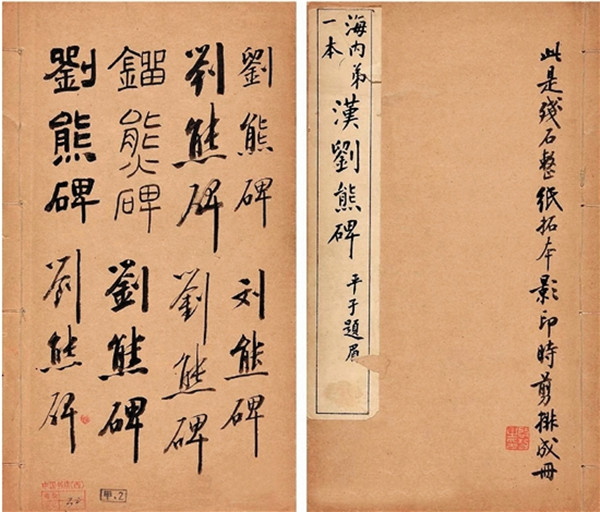 此是殘石整紙拓本影印時剪排成冊
海内弟
一本
漢劉熊碑
平子題眉
劉熊碑
劉熊碑
鎦熊碑
劉熊碑
刘熊碑
劉熊碑
劉熊碑
劉熊碑
甲.2